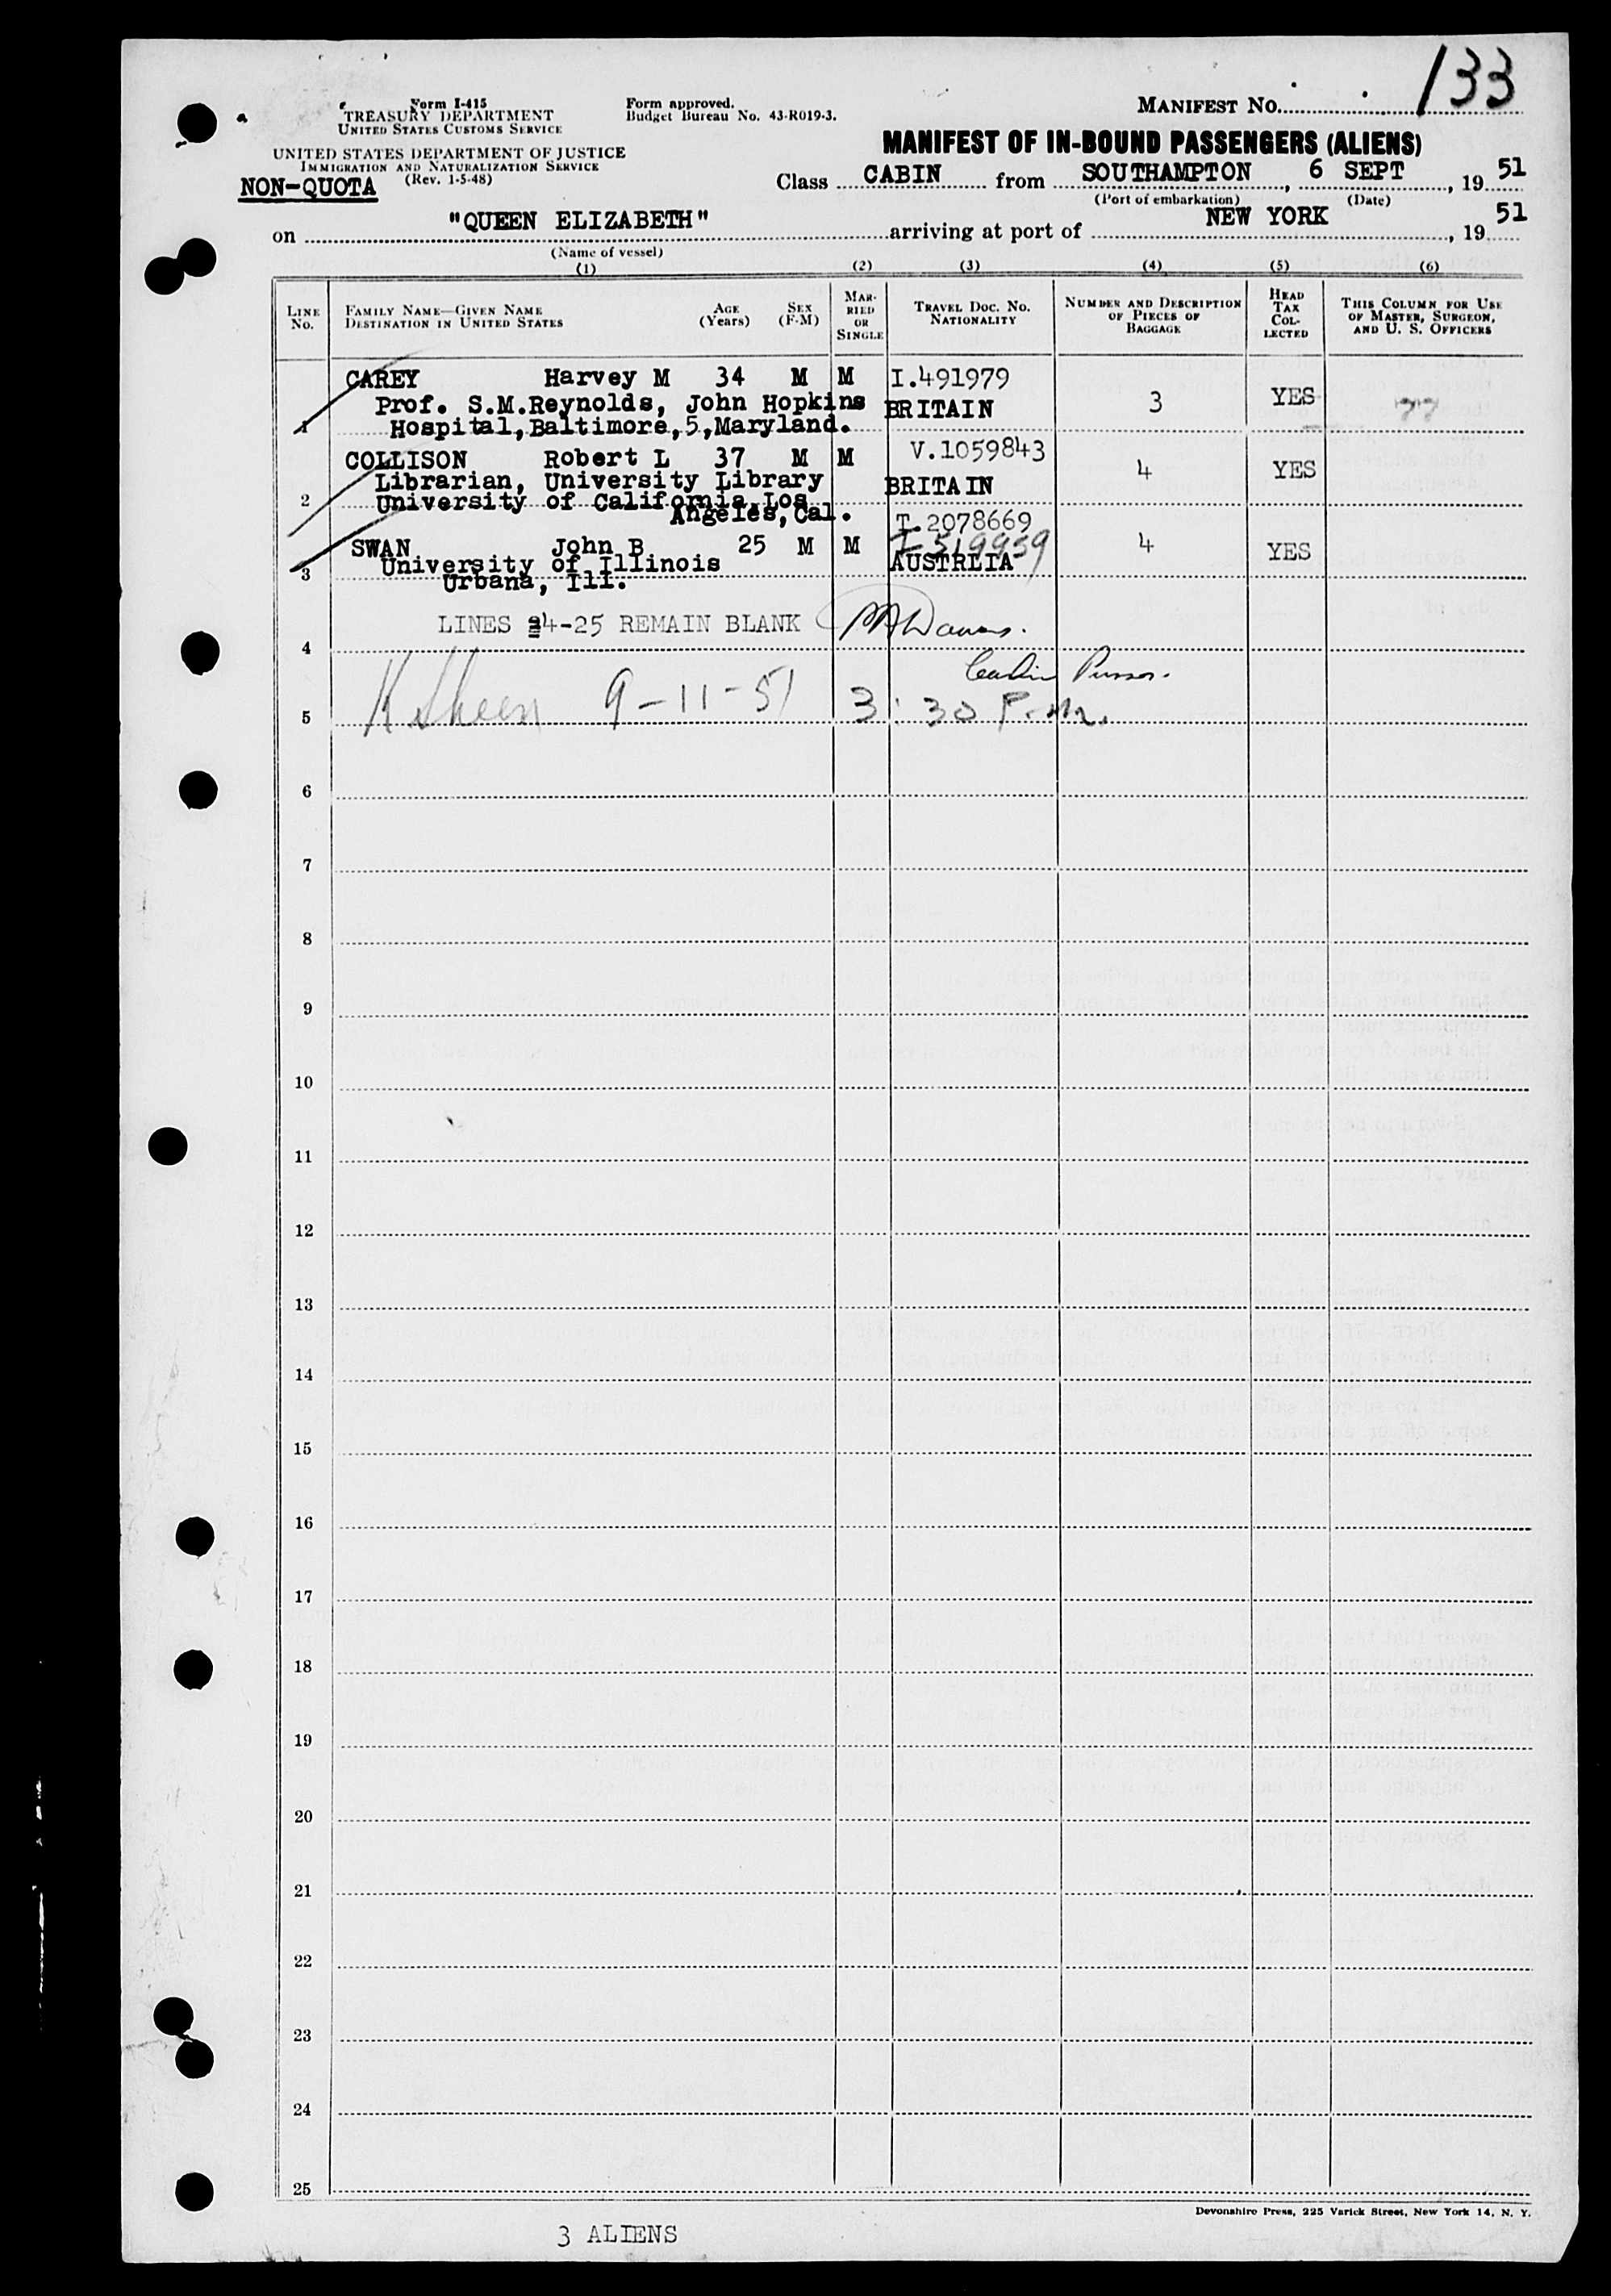 133
Form I-415
TREASURY DEPARTMENT
UNITED STATES CUSTOMS SERVICE
Form approved.
Budget Bureau No. 43-R019-3.
MANIFEST NO.
UNITED STATES DEPARTMENT OF JUSTICE
IMMIGRATION AND NATURALIZATION SERVICE
(Rev. 1-5-48)
NON-QUOTA
MANIFEST OF IN-BOUND PASSENGERS (ALIENS)
Class CABIN from SOUTHAMPTON, 6 SEPT, 19 51
(Port of embarkation) (Date)
on "QUEEN ELIZABETH" arriving at port of NEW YORK, 19 51
(Name of vessel)
(1) (2) (3) (4) (5) (6)
LINE No.
FAMILY NAME—GIVEN NAME
DESTINATION IN UNITED STATES
AGE (Years)
SEX (F-M)
MARRIED OR SINGLE
TRAVEL DOC. NO. NATIONALITY
NUMBER AND DESCRIPTION OF PIECES OF BAGGAGE
HEAD TAX COLLECTED
THIS COLUMN FOR USE OF MASTER, SURGEON, AND U. S. OFFICERS
1 CAREY Harvey M 34 M M I.491979 3 YES
Prof. S.M.Reynolds, John Hopkins BRITAIN
Hospital,Baltimore,5,Maryland.
2 COLLISON Robert L 37 M M V.1059843 4 YES
Librarian, University Library BRITAIN
University of California,Los
Angeles,Cal.
T.2078669
3 SWAN John B 25 M M I-519959 4 YES
University of Illinois AUSTRLIA
Urbana, Ill.
LINES 4-25 REMAIN BLANK
4
Cabin Purser.
5 K Sheen 9-11-51 3:30 P.M.
6
7
8
9
10
11
12
13
14
15
16
17
18
19
20
21
22
23
24
25
Devonshire Press, 225 Varick Street, New York 14, N. Y.
3 ALIENS